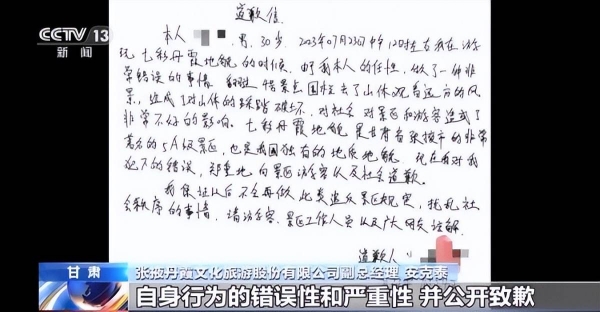 CCTV 13
新闻
道歉信
本人 男, 30岁, 2023年07月23日中午12时左右我在游
玩七彩丹霞地貌的时候, 由于我本人的任性, 做了一件非
常错误的事情 翻越 景点围栏去了山体观看远方的风
景, 造成了对山体的踩踏破坏, 对社会 对景区和游客造成了
非常不好的影响。七彩丹霞地貌 是甘肃省张掖市的非常
著名的5A级景区, 也是我国独有的地质地貌, 现在我对我
犯下的错误, 郑重地向景区游客以及社会道歉。
我保证以后不会再做此类违反景区规定, 扰乱社
会秩序的事情, 请游客、景区工作人员以及广大网友谅解
道歉人
甘肃
张掖丹霞文化旅游股份有限公司副总经理 安克泰
自身行为的错误性和严重性 并公开致歉